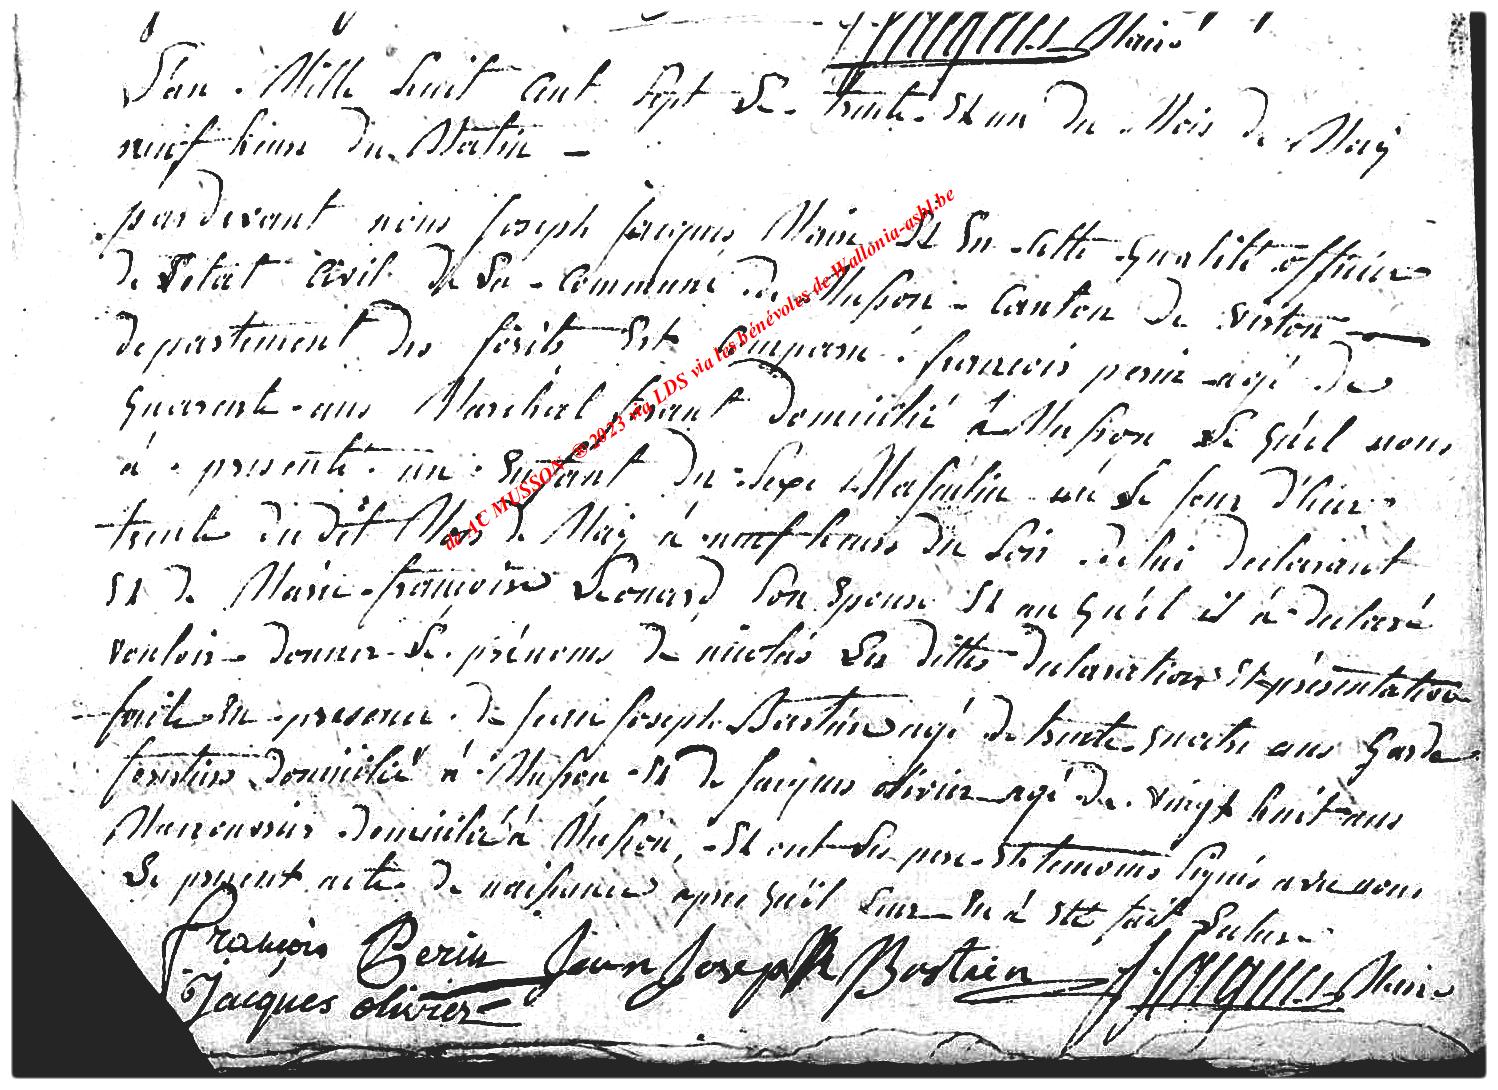 J Jacques Maire
L'an Mille huit cent sept Le trente Et un du Mois de Maÿ
neuf heures du Matin —
pardevant nous Joseph Jacques Maire Et En Cette qualité officier
de L'etat Civil de La Commune de Musson Canton de virton
departement des forêts Est Comparu françois perin agé de
quarente ans Marchal ferant domicilié à Musson Le quel nous
à presenté un Enfant du Sexe Masculin né Le jour d'hier
trente du dit Mois de Maÿ à neuf heures du Soir de lui declarant
Et de Marie françoise Leonard Son Epouse Et au quel il à declaré
vouloir donner Le prénoms de nicolas Les dittes declaration Et présentation
faite En presence de Jean Joseph Bastien agé de trente quatre ans Garde
forestier domicilié à Musson Et de Jacques olivier agé de vingt huit ans
domicilié à Musson, Et ont Les pere Et temoins Signés avec nous
Le present acte de naissance apres qu'il Leur En à Eté fait Lecture
François Perin Jean Joseph Bastien J Jacques Maire
Jacques olivier
de AC MUSSON ® 2023 via LDS via les bénévoles de Wallonia-asbl.be